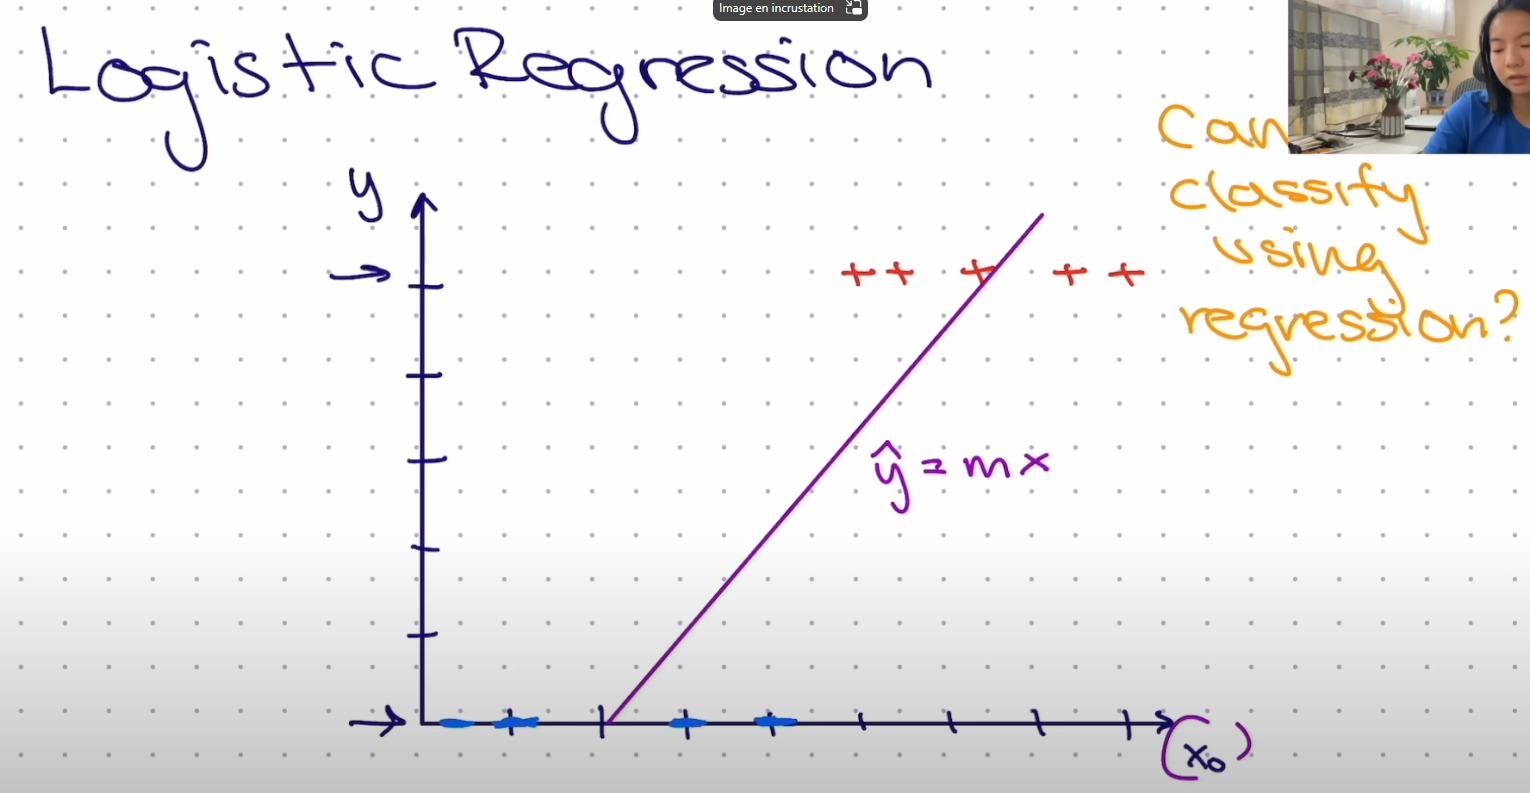 Image en incrustation
Logistic Regression
Can
classify
using
regression?
y
ŷ = mx
(x₀)